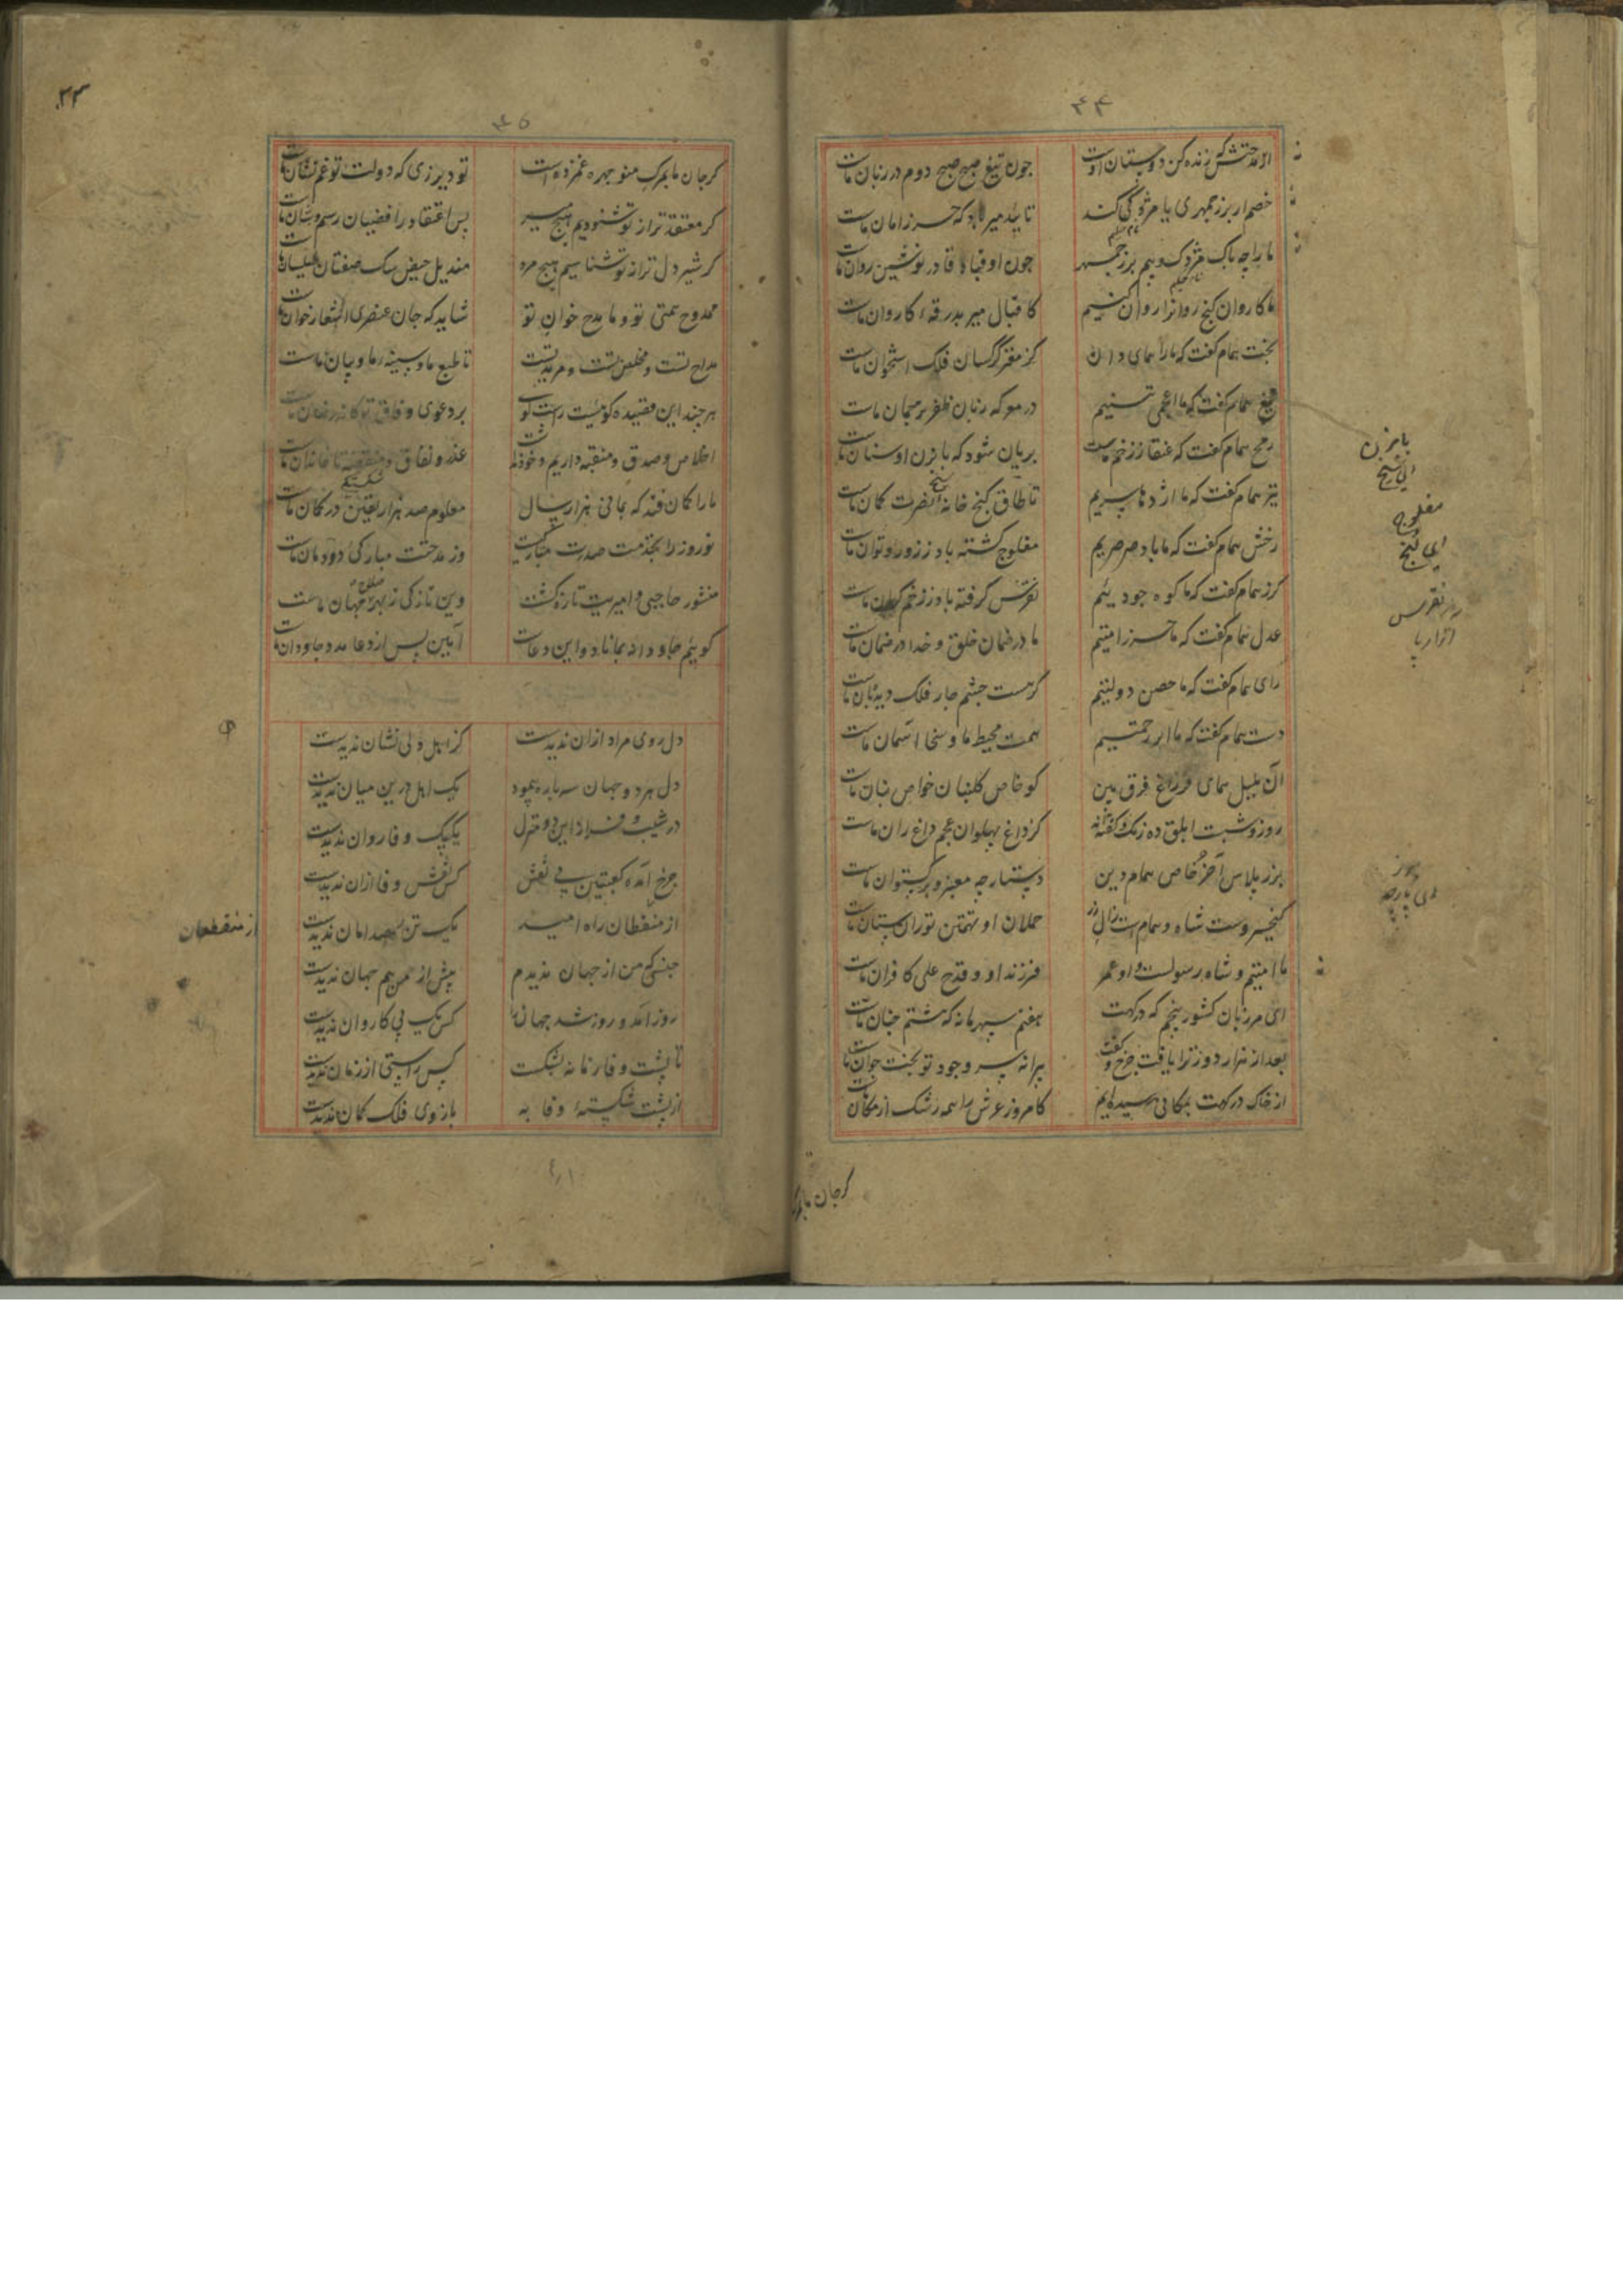 ۴۴
از مدحتش که زنده کن دوستان اوست چون تیغ صبح صبح دوم در زبان ماست
خصم ار بزرجمهری یا مزدکی کند تایید میر باد که حرز امان ماست
ما را چه باک مزدک و بیم بزرجمهر چون او قباد قادر نوشین روان ماست
ما کاروان گنج روانرا روان کنیم کاقبال میر بدرقهٔ کاروان ماست
بخت همام گفت که ما را همای دان کز مغز کرکسان فلک استخوان ماست
تیغ همام گفت که ما اعمی تنیم در معرکه زبان ظفر ترجمان ماست
رمح همام گفت که عنقا ز زخم ماست بریان شود که بابزن او سنان ماست
تیر همام گفت که ما اژدها پریم تا طاق گنج خانه نصرت کمان ماست
رخش همام گفت که ما باد صرصریم مفلوج گشته باد ز زور و توان ماست
گرز همام گفت که ما کوه جودییم نقرس گرفته باد ز زخم گران ماست
عدل همام گفت که ما حرز امتیم ما در ضمان خلق و خدا در ضمان ماست
رای همام گفت که ما حصن دولتیم کز هست چشم چار فلک دیدبان ماست
دست همام گفت که ما ابر رحمتیم همت محیط ما و سخا آسمان ماست
آن پیل همای فر زاغ فرق بین کو خاص گلبنان خواص بنان ماست
روز و شبت ابلق ده رنگ گفته کز داغ پهلوان عجم داغ ران ماست
بزر پلاس آخر خاص همام دین دستارچه معنبر و برگستوان ماست
کیخسروست شاه و همام است زال زر حملان او تهمتن توران ستان ماست
ما امتیم و شاه رسولست و او عمر فرزند او و قدح علی کافران ماست
ای مرزبان کشور پنجم که درگهت هفتم سپهر مانه که هشتم جنان ماست
بعد از هزار دوز ترا یافت چرخ و گفت پیرانه سر وجود تو بخت جوان ماست
از خاک درگهت بمکانی رسیده‌ایم کامروز عرش را همه رشک از مکان ماست
بابزن
ای سیخ
مفلوج
ای لنج
نقرس
ای پارچه
گرجان ما بمرگ
۴۵
۲۳
گرجان ما بمرگ منوچهر غمزده است تو دیر زی که دولت تو غم نشان ماست
گر معتقدتر از تو شنودیم هیچ میر پس اعتقاد رافضیان رسم و شان ماست
گر شیردل‌تر از تو شناسیم هیچ مرد مندیل حیض سگ صفتان طیلسان ماست
ممدوح همتی تو و ما مدح خوان تو شاید که جان عنصری اشعار خوان ماست
مداح تست و مخلص تست و مرید تست تا طبع ما و سینه ما و بیان ماست
هر چند این قصیده گوئیست راست گو بر دعوی وفاق تو
اخلاص و صدق و منقبه داریم و خود غدر و نفاق و منقصه تا خاندان ماست
ما را کمان فتد که بمانی هزار سال معلوم صد هزار یقین در کمان ماست
نوروز را بخدمت صدرت مبارکیست وز مدحتت مبارکی دودمان ماست
منشور حاجبی و امیریت تازه گشت وین تازگی ز بهر صلاح جهان ماست
گوییم جاودانه بماناد و این دعاست آمین پس از دعا مدد جاودان ماست
دل روی مراد از آن ندیدست کز اهل دلی نشان ندیدست
دل هر دو جهان سه باره پیمود یک اهل درین میان ندیدست
در شیب و فراز این دو منزل یک پیک وفا روان ندیدست
چرخ آمده کعبتین بی نقش کس نقش وفا از آن ندیدست
از منقطعان راه امید یک تن رصد امان ندیدست
جنسی که من از جهان ندیدم پیش از من هم جهان ندیدست
روز آمد و روز شد جهان را کس یک پی کاروان ندیدست
تا پشت وفا زمانه بشکست کس راستی از زمان ندیدست
از پشت شکستهٔ وفا به بازوی فلک کمان ندیدست
از منقطعان